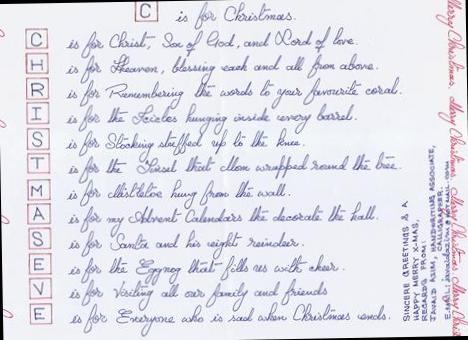 C is for Christmas.
C is for Christ, Son of God, and Lord of love.
H is for Heaven, blessing each and all from above.
R is for Remembering the words to your favourite coral.
I is for the Icicles hunging inside every barrel.
S is for Stocking stuffed up to the knee.
T is for the Tinsel that Mom wrapped round the tree.
M is for Mistletoe hung from the wall.
A is for my Advent Calendars the decorate the hall.
S is for Santa and his eight reinder.
E is for the Eggnog that fills us with cheer.
V is for Visiting all our family and friends
E is for Everyone who is sad when Christmas ends.
SINCERE GREETINGS & A
HAPPY MERRY X-MAS,
REGARDS FROM:
JAVAID ASIM, HANDWRITING ASSOCIATE,
CALLIGRAPHER.
Merry Christmas, Merry Christmas Merry Christmas